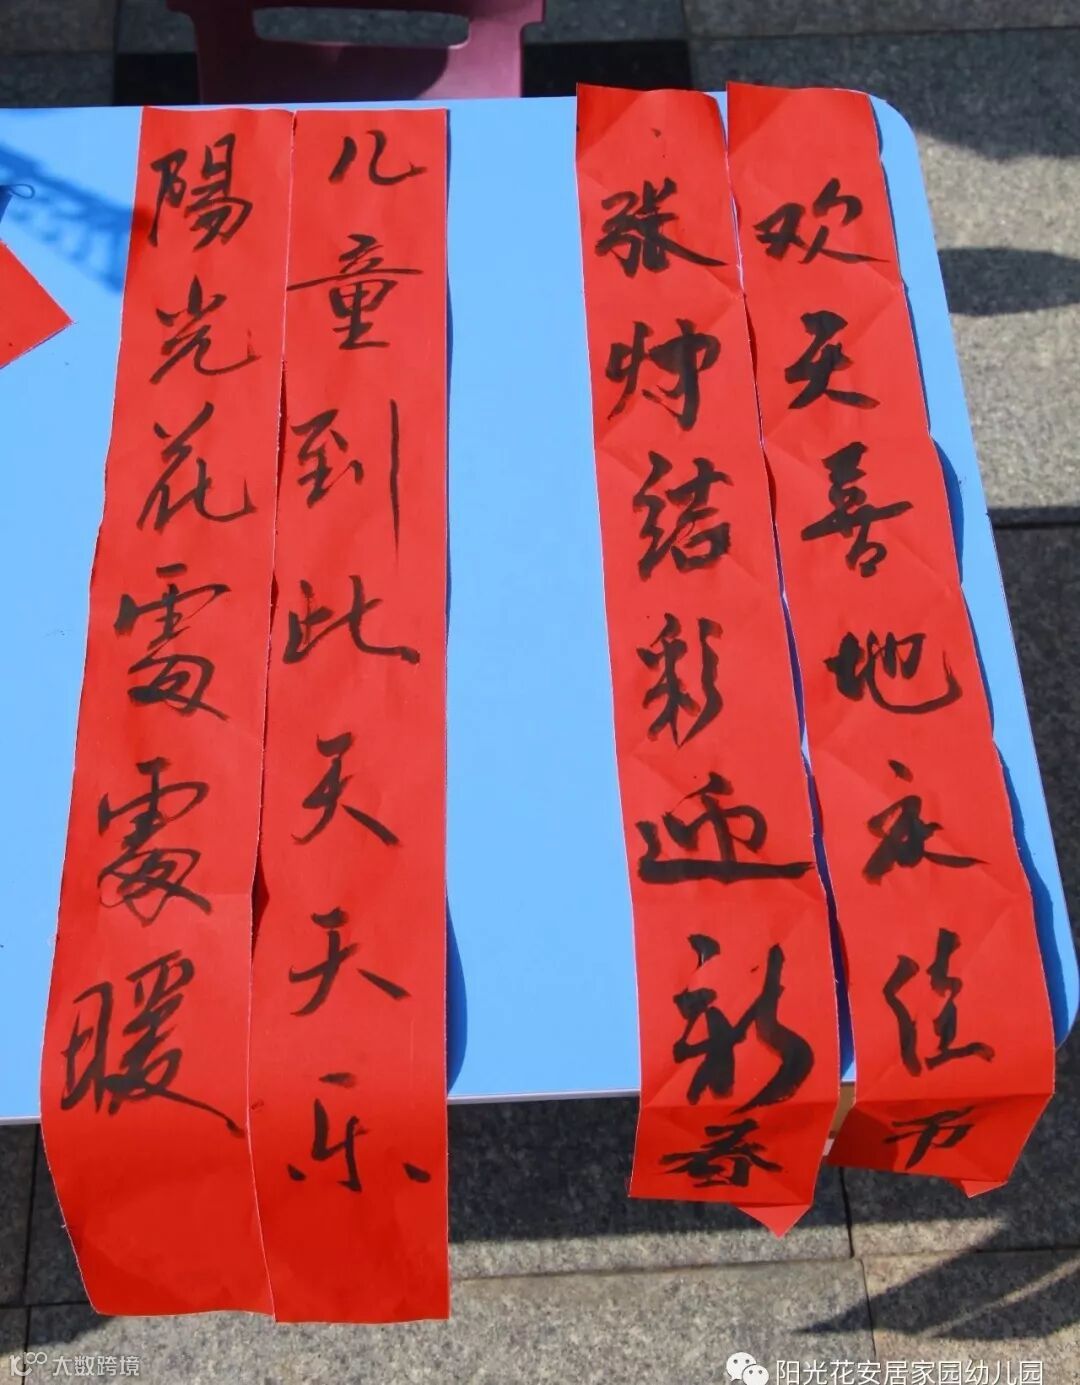 欢天喜地庆佳节
张灯结彩迎新春
儿童到此天天乐
陽光花處處暖
大数跨境
阳光花安居家园幼儿园